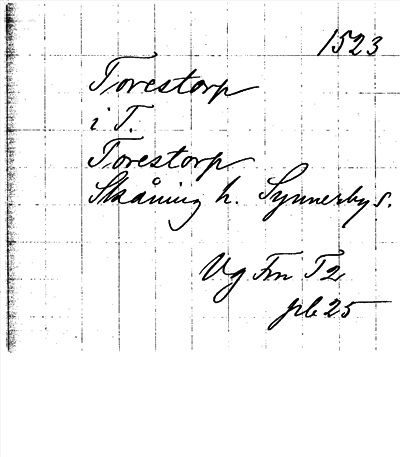 1523
Torestorp
i T.
Torestorp
Skåning h. Synnerby s.
Vg Frn T2
pb 25